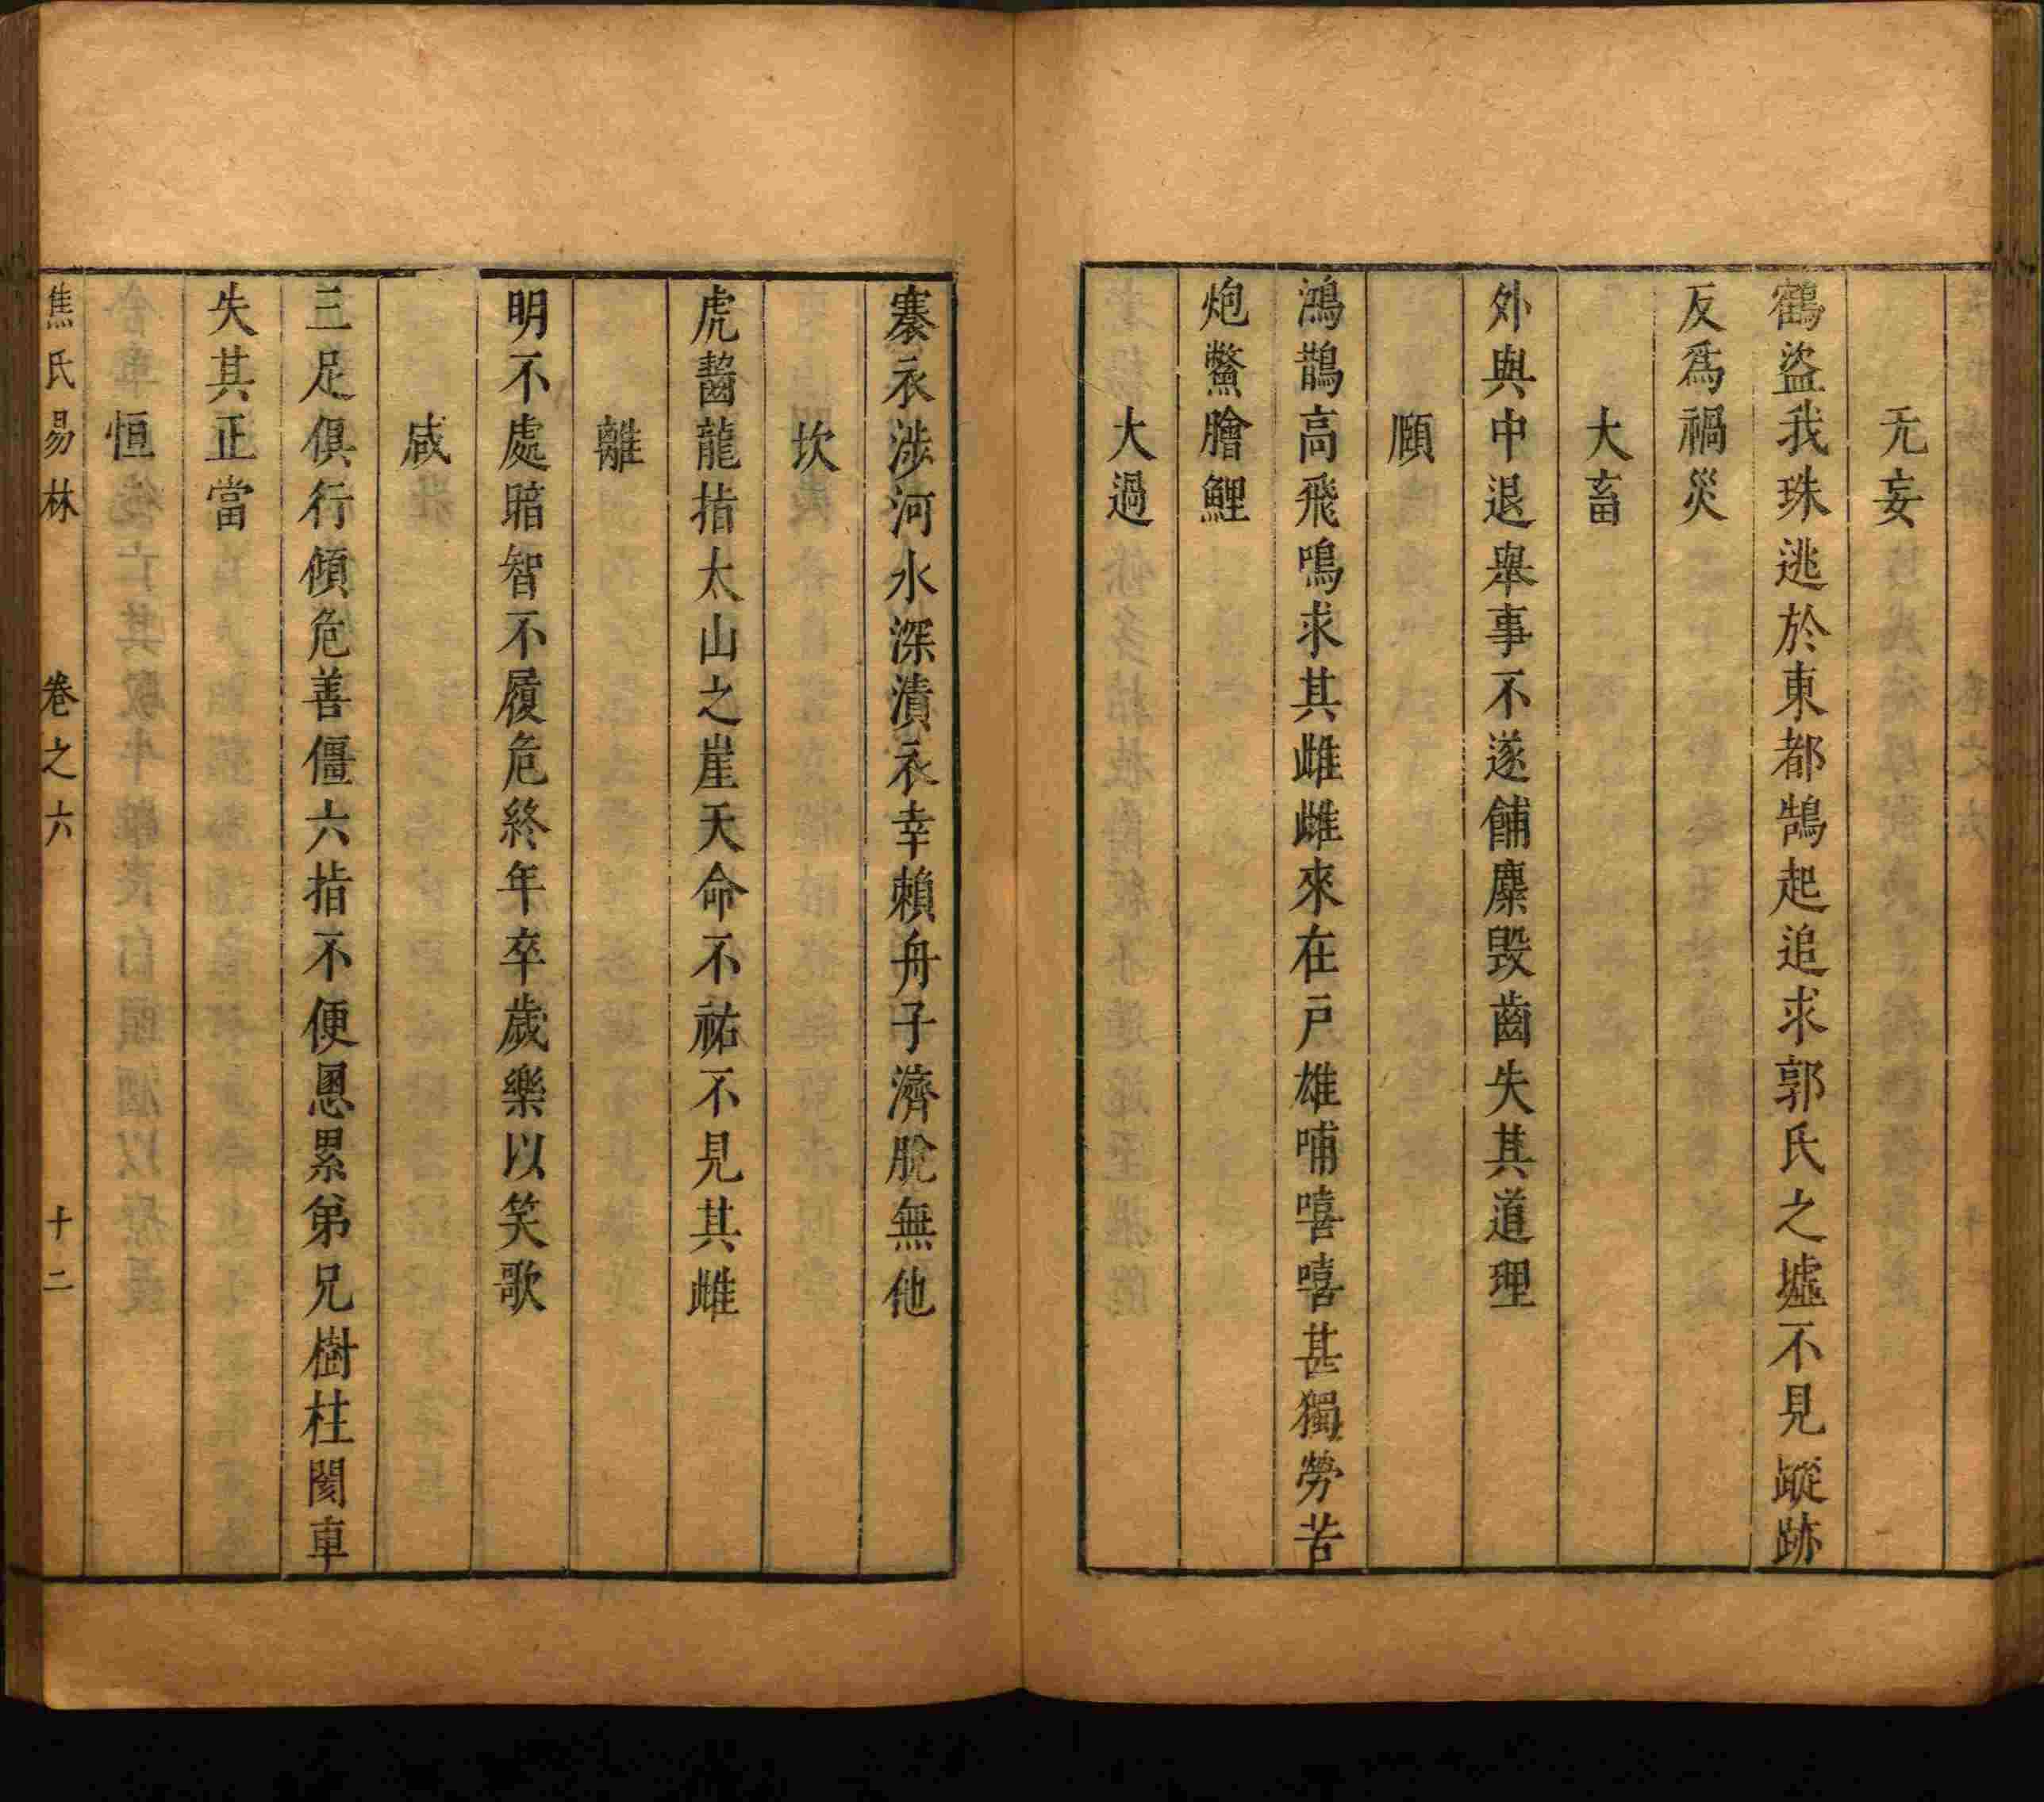 无妄
鶴盜我珠逃於東都鵠起追求郭氏之墟不見蹤跡
反爲禍災
大畜
外與中退舉事不遂餔麋毀齒失其道理
頤
鴻鵲高飛鳴求其雌雌來在戸雄哺嘻嘻甚獨勞苦
炮鱉膾鯉
大過
褰衣涉河水深漬衣幸賴舟子濟脫無他
坎
虎齧龍指太山之崖天命不祐不見其雌
離
明不處暗智不履危終年卒歲樂以笑歌
咸
三足俱行傾危善僵六指不便恩累弟兄樹柱閡車
失其正當
恒
焦氏易林 卷之六 十二